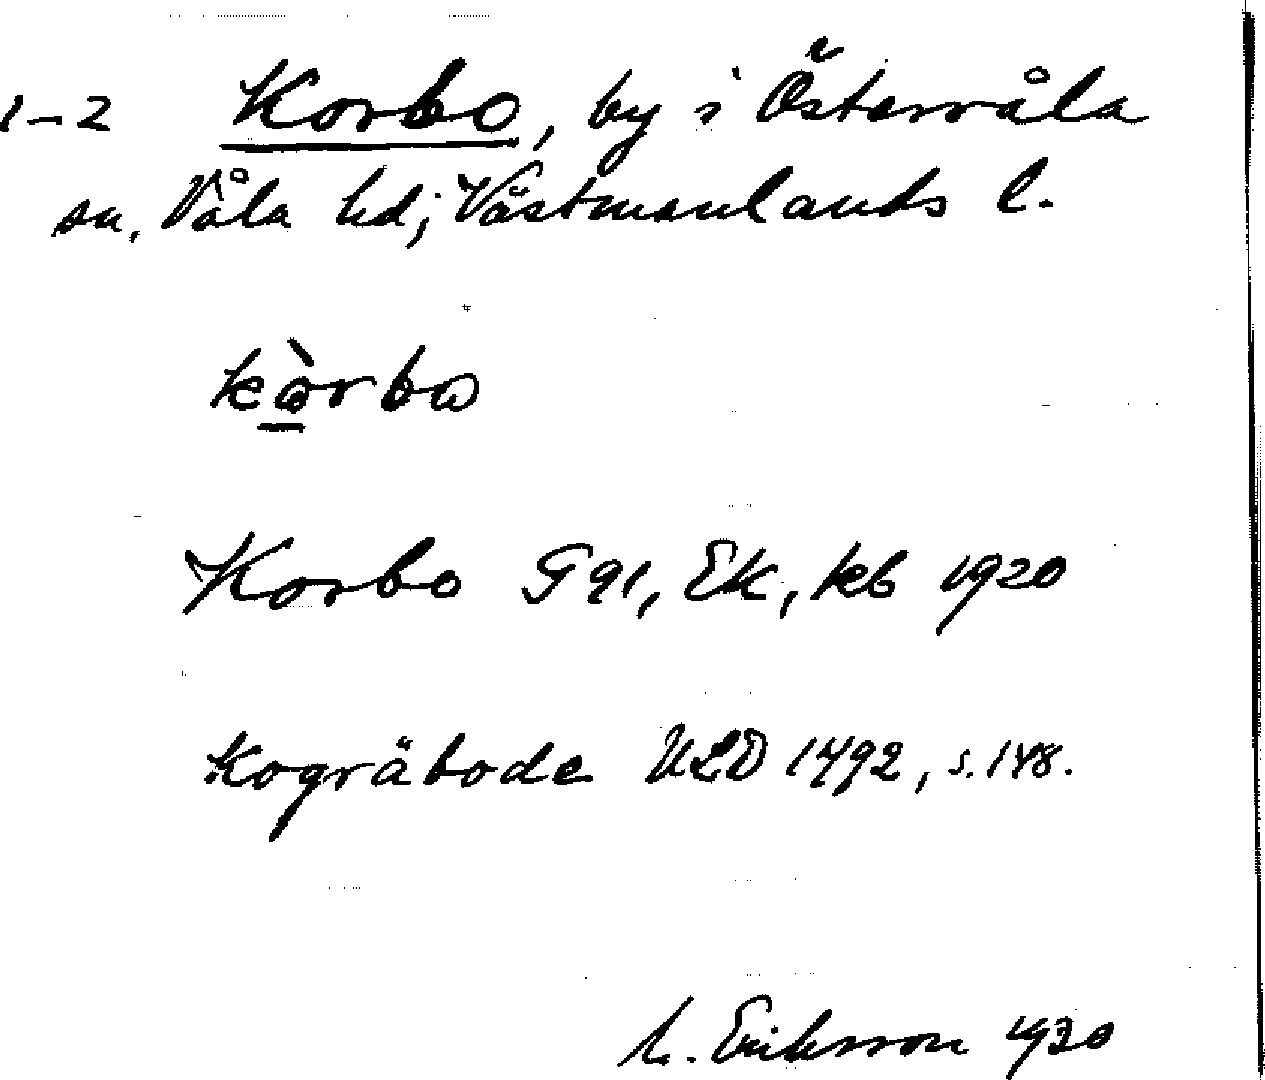 1-2 Korbo, by i Östervåla
sn, Våla hd; Västmanlands l.
kòrbω
Korbo G 91, Ek, kb 1920
Kogräbode ULD 1492, s. 148.
M. Eriksson 1930